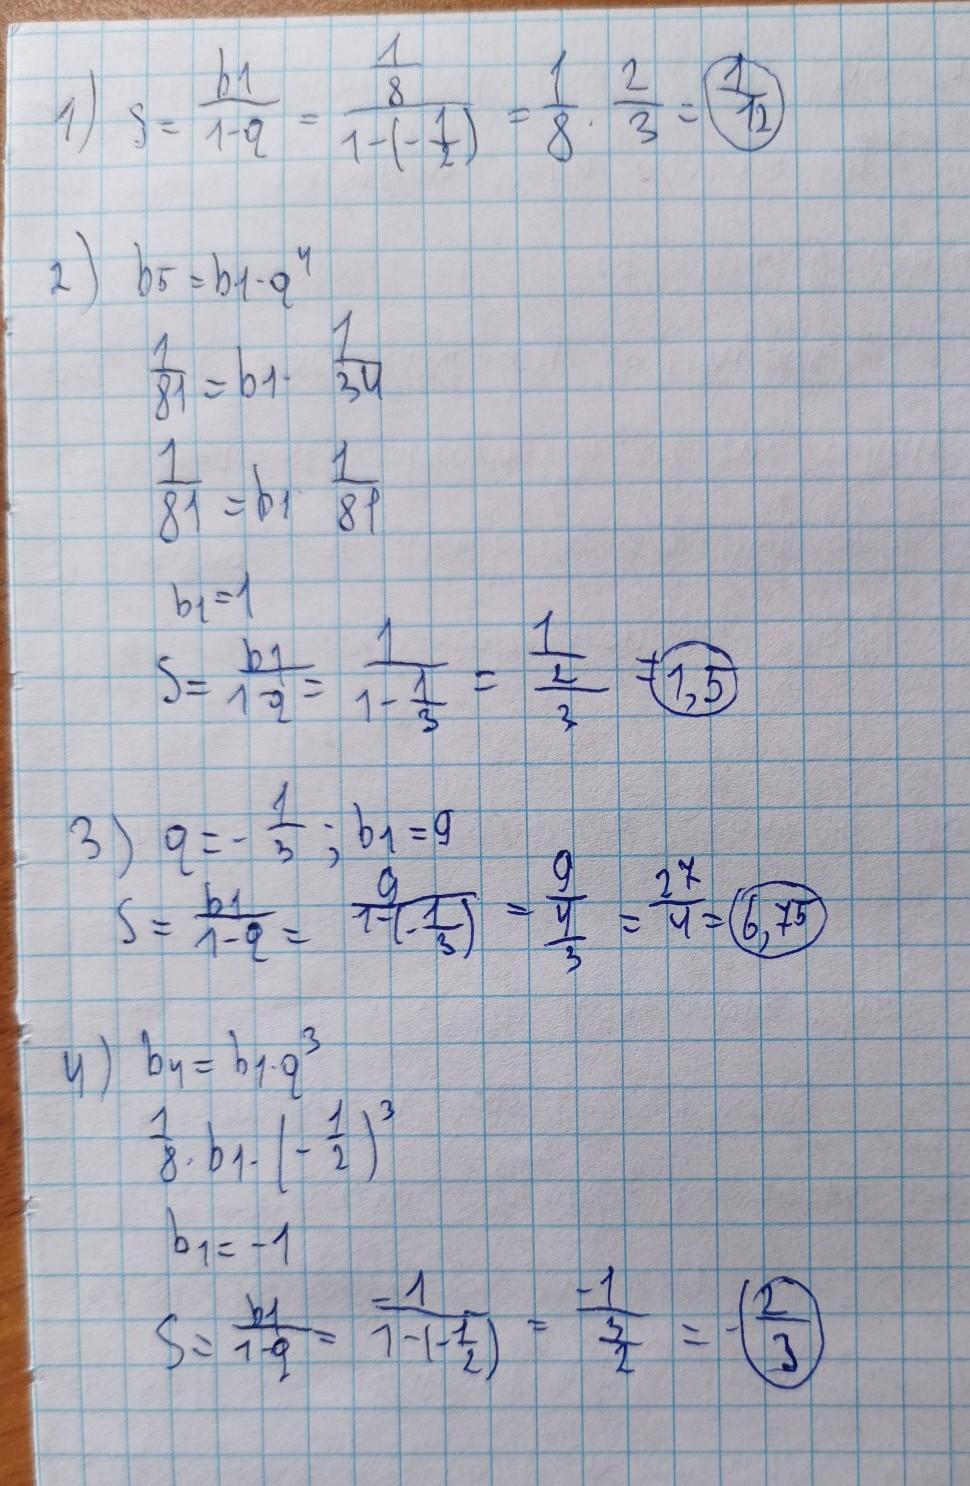 1) S = b1/(1-q) = (1/8)/(1-(-1/2)) = 1/8 · 2/3 = 1/12
2) b5 = b1 · q^4
1/81 = b1 · 1/34
1/81 = b1 · 1/81
b1 = 1
S = b1/(1-q) = 1/(1-1/3) = 1/(2/3) = 1,5
3) q = -1/3 ; b1 = 9
S = b1/(1-q) = 9/(1-(-1/3)) = 9/(4/3) = 27/4 = 6,75
4) b4 = b1 · q^3
1/8 · b1 · (-1/2)^3
b1 = -1
S = b1/(1-q) = -1/(1-(-1/2)) = -1/(3/2) = -2/3